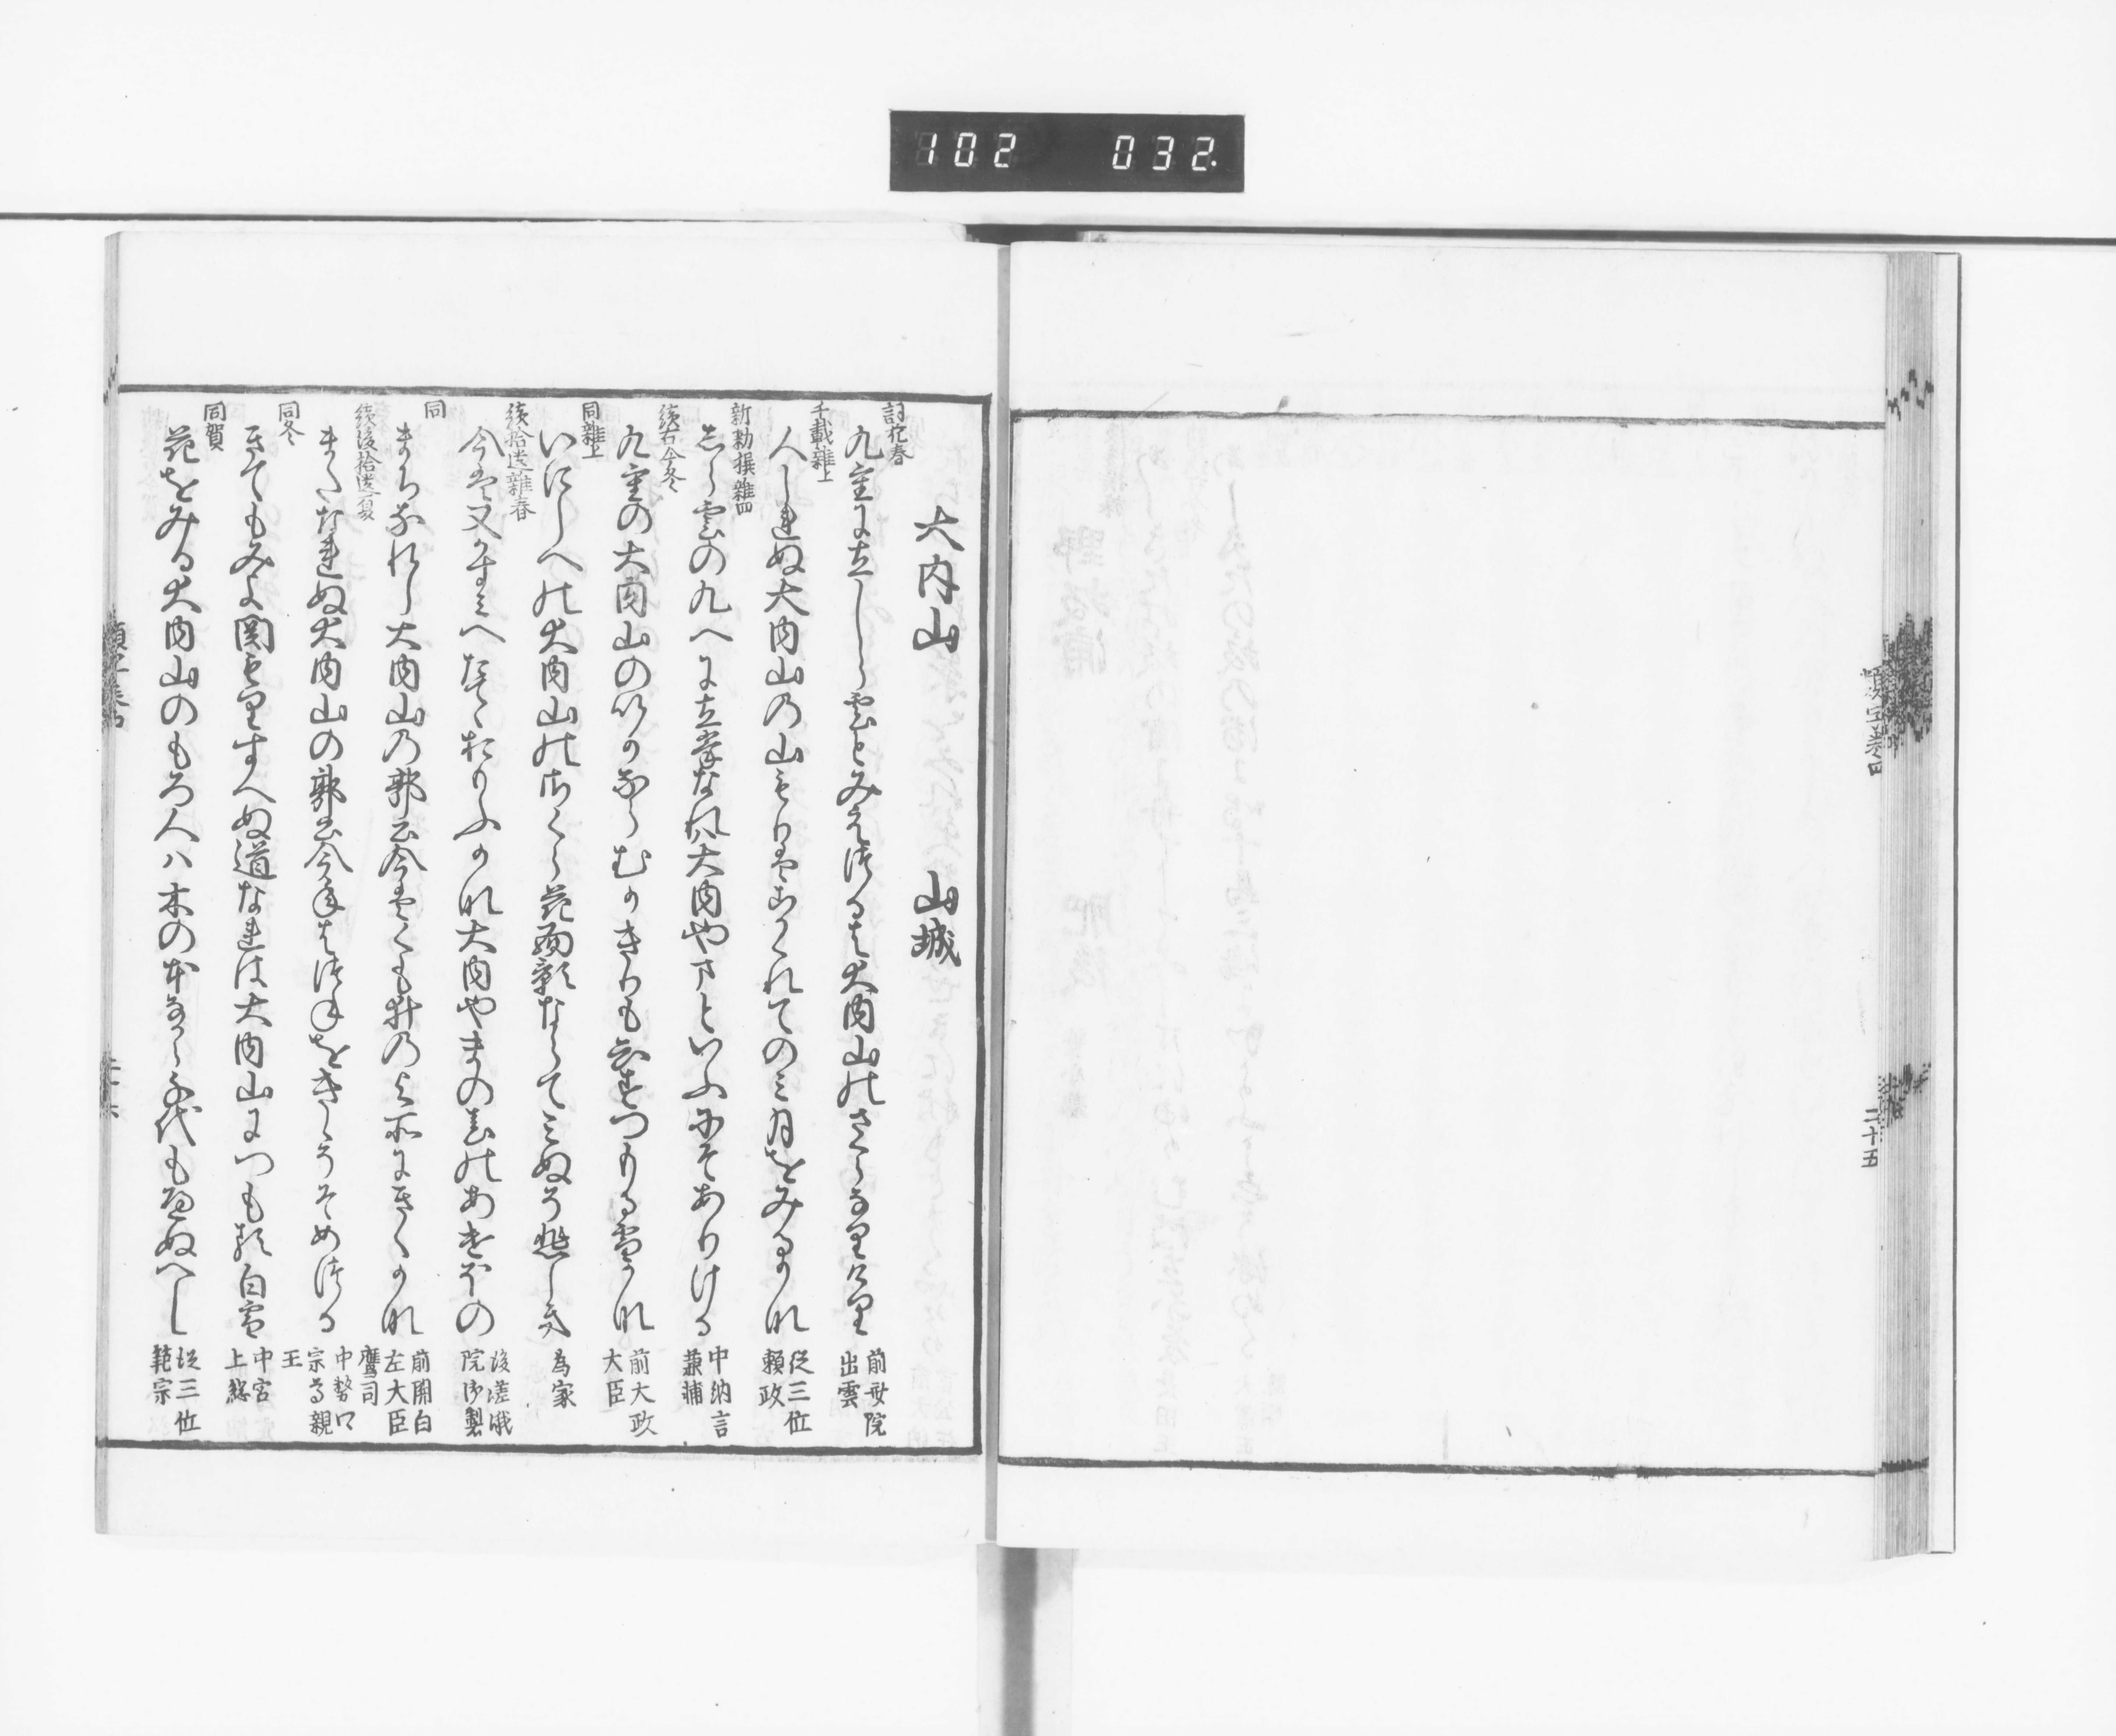 102 032.
二十五
大内山 山城
詞花春
九重に立しら雲とみえつるは大内山のさくらなりけり
前斎院出雲
千載雑上
人しれぬ大内山の山もりはこかくれてのみ月をみるかな
従三位頼政
新勅撰雑四
しら雲の九へに立峯なれは大内やまといふにそありける
中納言兼輔
続古今冬
九重の大内山のいかならむかきりもしらすつもる雪かな
前大政大臣
同雑上
いにしへの大内山のさくら花面影ならてみぬそ悲しき
為家
続拾遺雑春
今は又かすみへたてゝおもふかな大内やまの春のあけほの
後嵯峨院御製
同
まちなれし大内山の郭公今はくものよそにきくかな
前関白左大臣鷹司
続後拾遺夏
またなれぬ大内山の郭公今年はつ年をきゝそそめつる
中務口宗尊親王
同冬
きてもみよ関もりすへぬ道なれは大内山につもる白雪
中宮上総
同賀
花をみる大内山のもろ人ハ木の本なから千代もへぬへし
従三位範宗